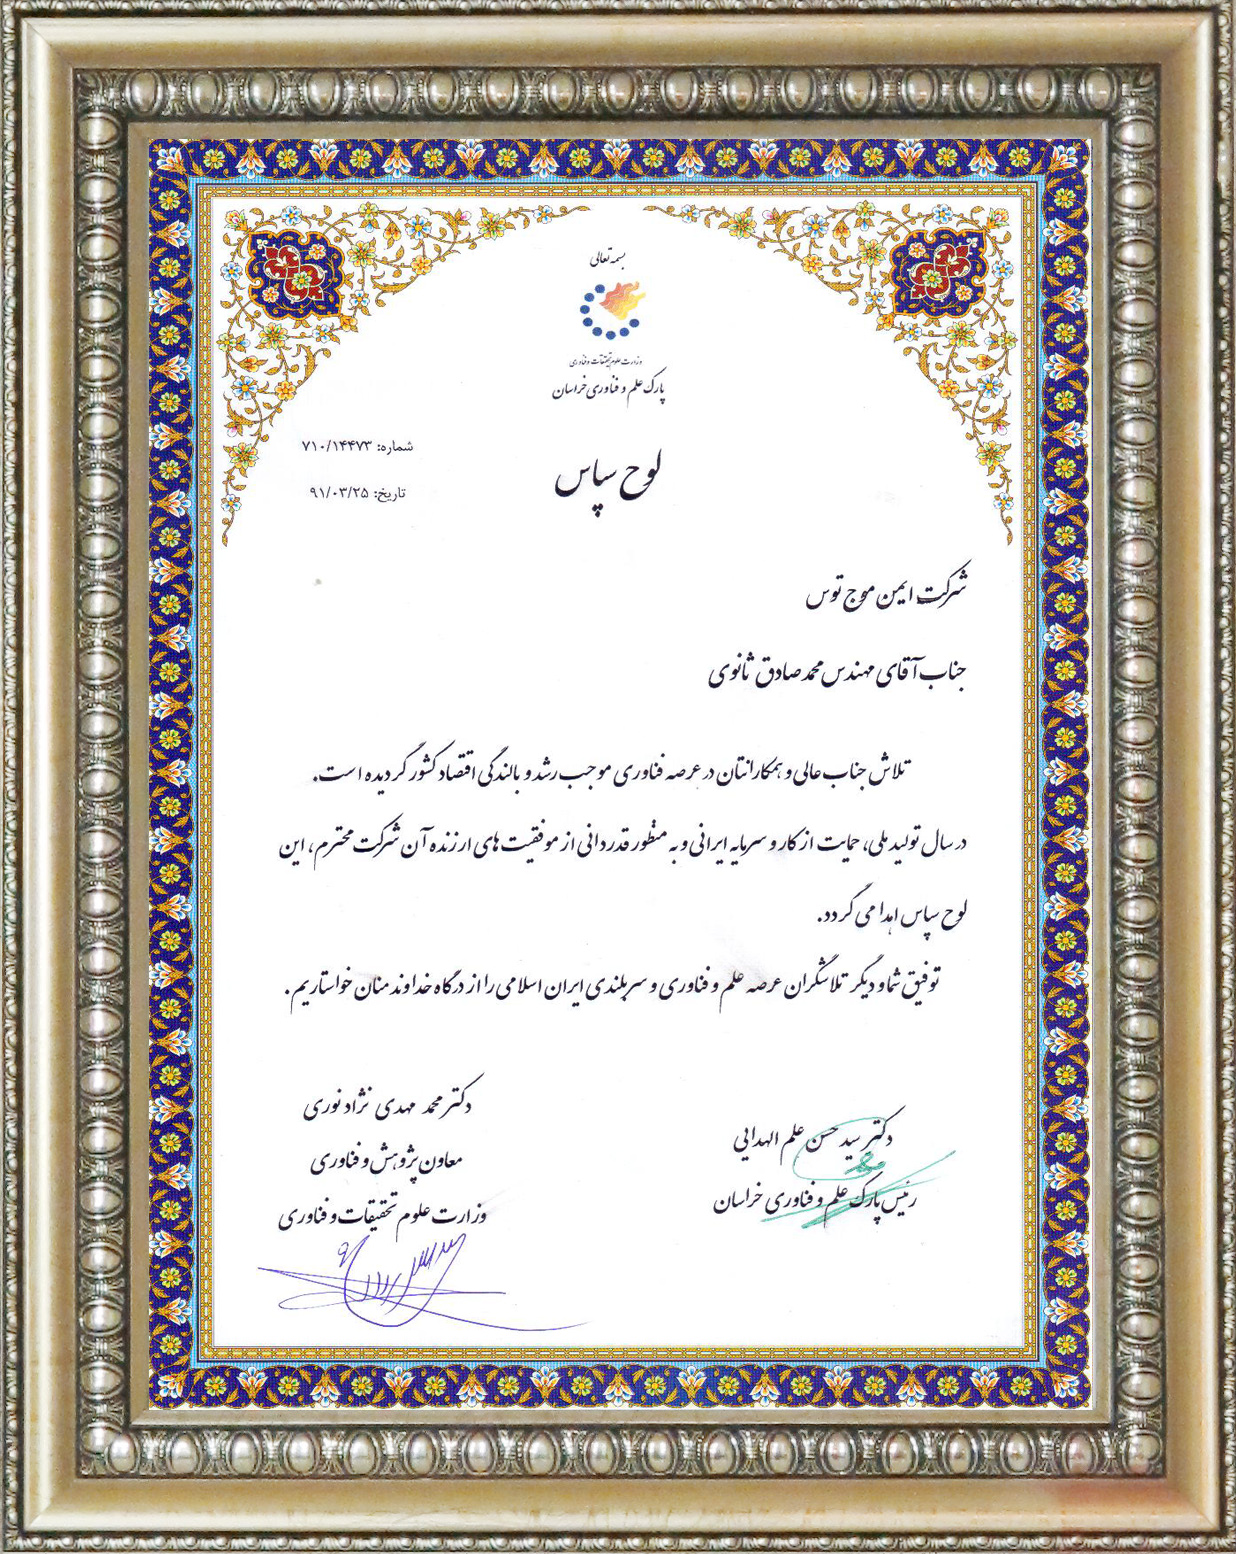 بسمه تعالی
وزارت علوم تحقیقات و فناوری
پارک علم و فناوری خراسان
شماره: ۷۱۰/۱۴۴۷۳
لوح سپاس
تاریخ: ۹۱/۰۳/۲۵
شرکت ایمن موج توس
جناب آقای مهندس محمد صادق ثانوی
تلاش جناب عالی و همکارانتان در عرصه فناوری موجب رشد و بالندگی اقتصاد کشور گردیده است.
در سال تولید ملی، حمایت از کار و سرمایه ایرانی و به منظور قدردانی از موفقیت های ارزنده آن شرکت محترم، این
لوح سپاس اهدا می گردد.
توفیق شما و دیگر تلاشگران عرصه علم و فناوری و سربلندی ایران اسلامی را از درگاه خداوند منان خواستاریم.
دکتر سید حسن علم الهدایی
رئیس پارک علم و فناوری خراسان
دکتر محمد مهدی نژاد نوری
معاون پژوهش و فناوری
وزارت علوم تحقیقات و فناوری